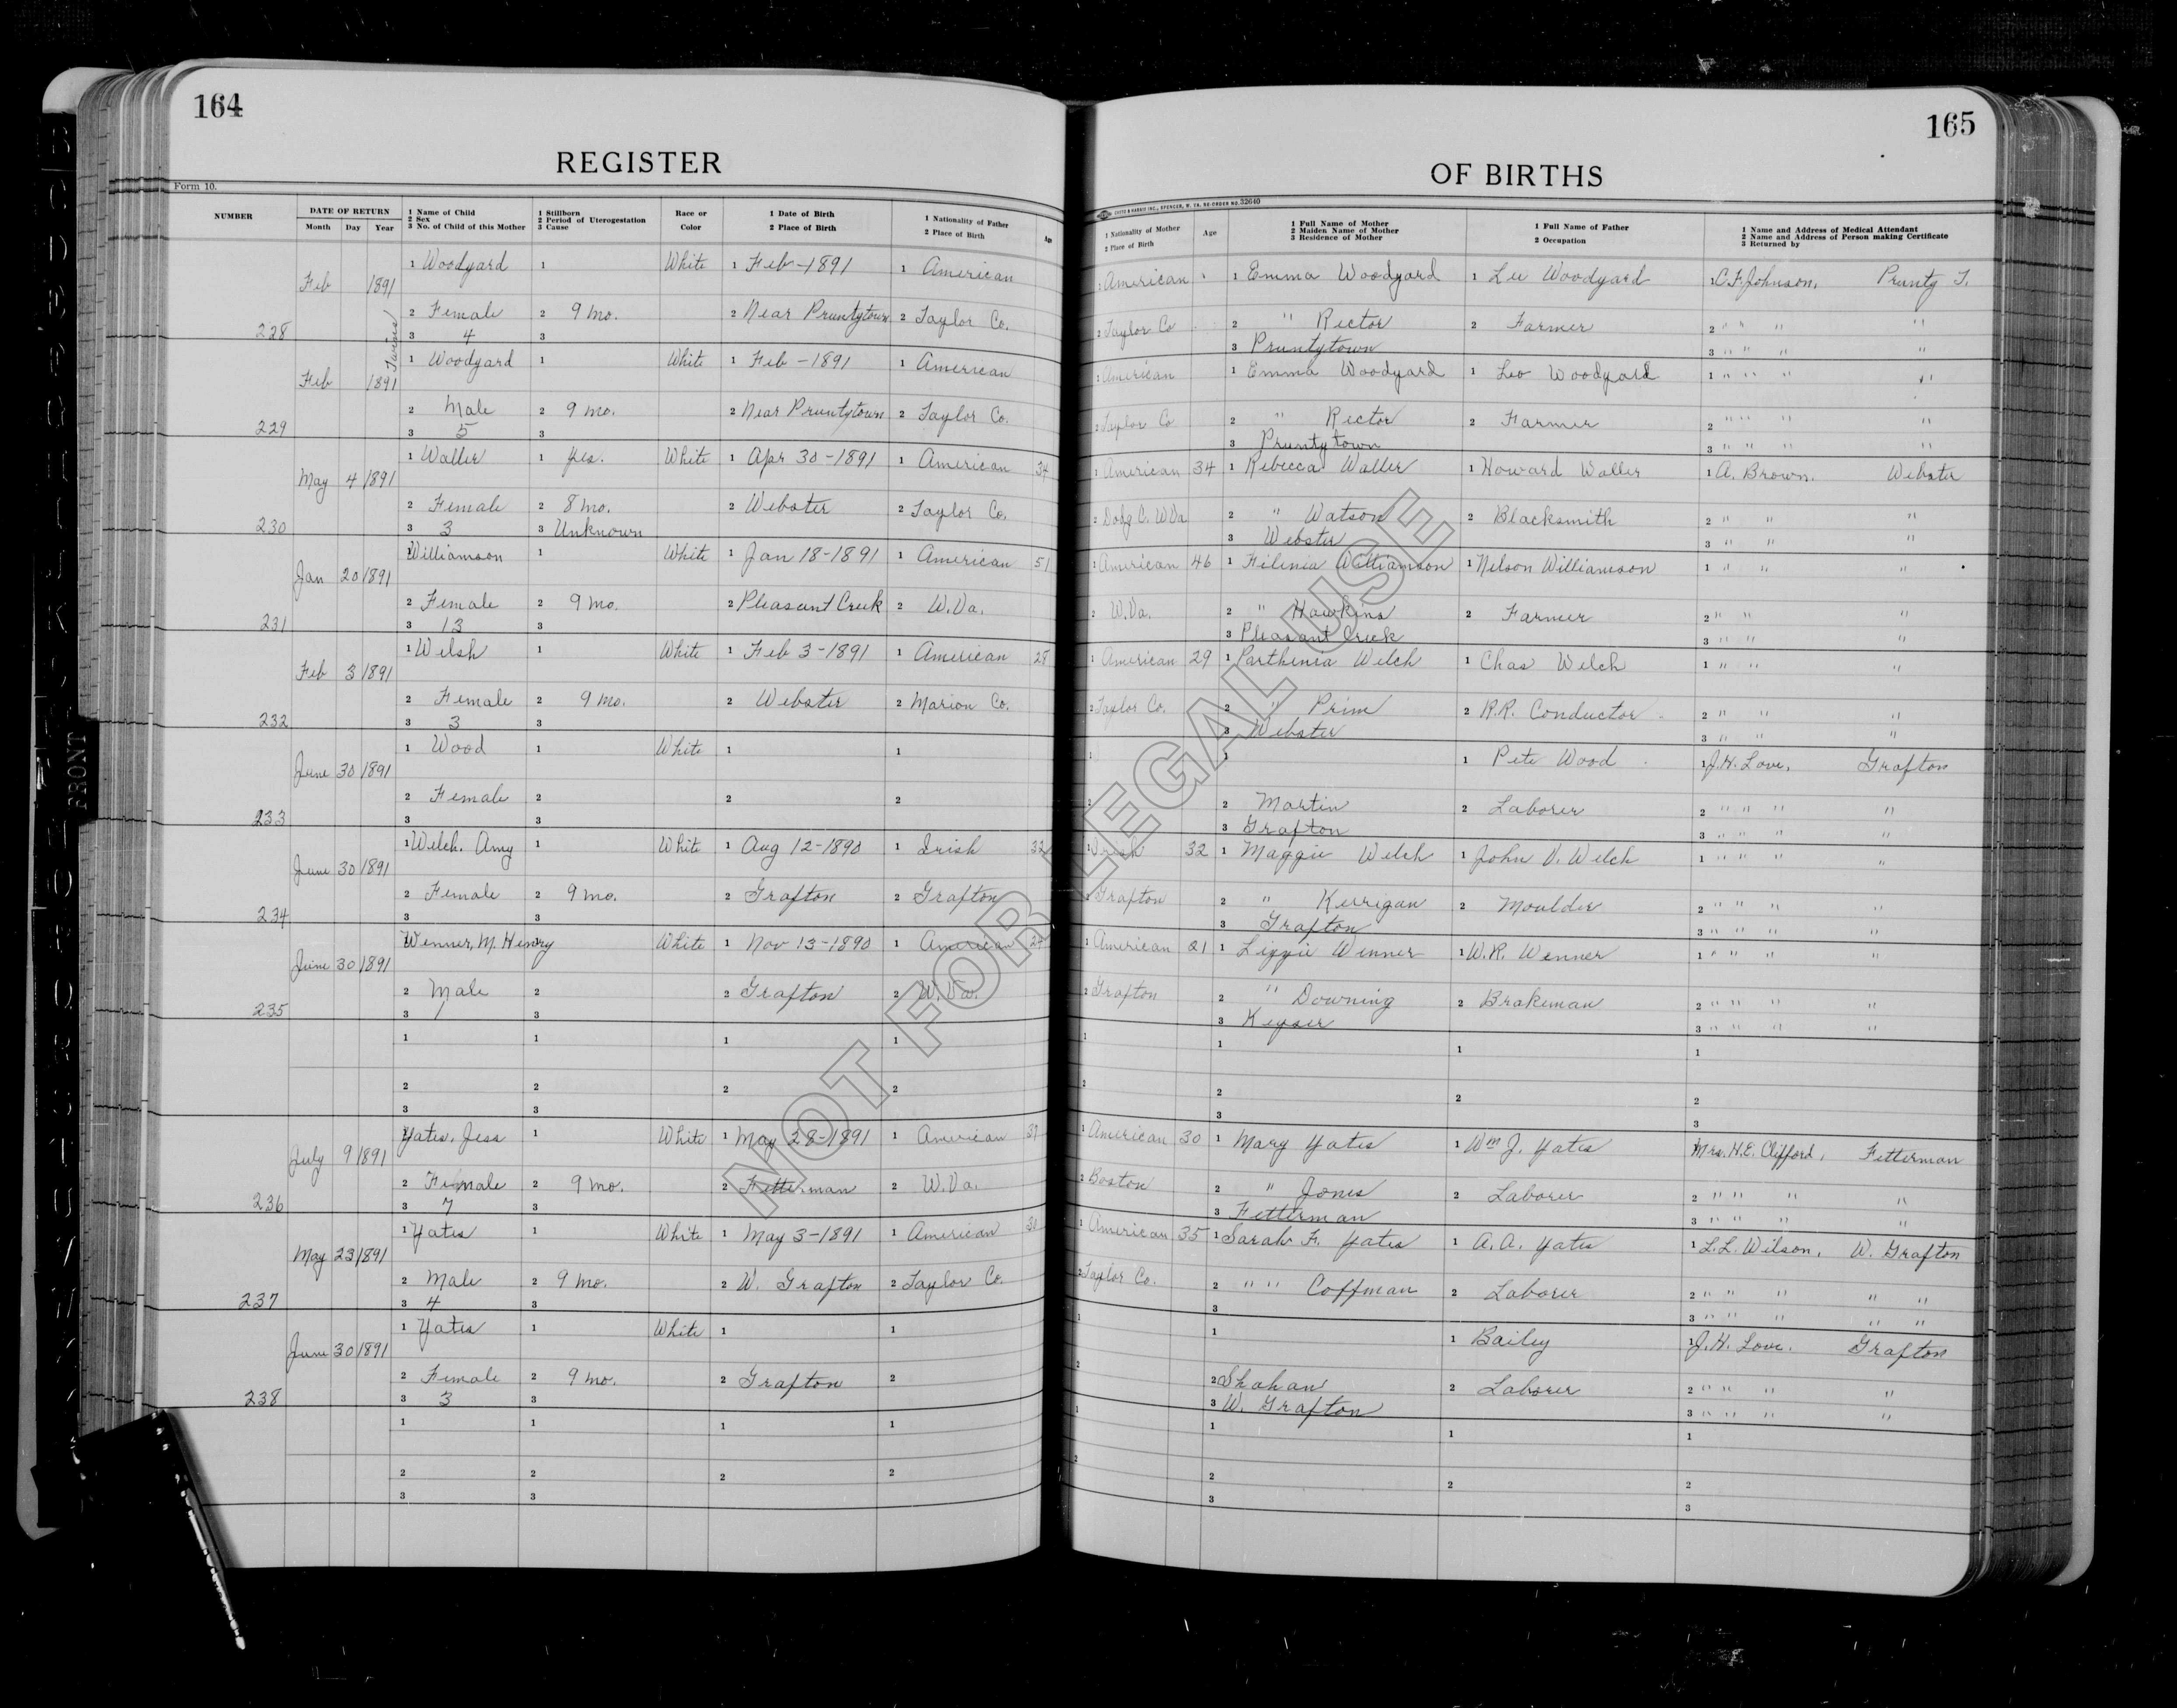 164
165
REGISTER
OF BIRTHS
Form 10.
CASTO & HARRIS INC., SPENCER, W. VA. RE-ORDER NO. 32640
NUMBER
DATE OF RETURN
Month Day Year
1 Name of Child
2 Sex
3 No. of Child of this Mother
1 Stillborn
2 Period of Uterogestation
3 Cause
Race or
Color
1 Date of Birth
2 Place of Birth
1 Nationality of Father
2 Place of Birth
Age
1 Nationality of Mother
2 Place of Birth
Age
1 Full Name of Mother
2 Maiden Name of Mother
3 Residence of Mother
1 Full Name of Father
2 Occupation
1 Name and Address of Medical Attendant
2 Name and Address of Person making Certificate
3 Returned by
Feb 1891 1 Woodyard 1 White 1 Feb-1891 1 American 1 American 1 Emma Woodyard 1 Lee Woodyard 1 C.F. Johnson, Prunty T.
2 Female 2 9 mo. 2 Near Pruntytown 2 Taylor Co. 2 Taylor Co 2 " Rector 2 Farmer 2 " " " "
228 3 4 3 3 Pruntytown 3 " " " "
Twins
Feb 1891 1 Woodyard 1 White 1 Feb-1891 1 American 1 American 1 Emma Woodyard 1 Leo Woodyard 1 " " " "
2 Male 2 9 mo. 2 Near Pruntytown 2 Taylor Co. 2 Taylor Co 2 " Rector 2 Farmer 2 " " " "
229 3 5 3 3 Pruntytown 3 " " " "
May 4 1891 1 Waller 1 yes. White 1 Apr 30-1891 1 American 34 1 American 34 1 Rebecca Waller 1 Howard Waller 1 A. Brown. Webster
2 Female 2 8 mo. 2 Webster 2 Taylor Co. 2 Dodg C. W Va 2 " Watson 2 Blacksmith 2 " " "
230 3 3 3 Unknown 3 Webster 3 " " "
Jan 20 1891 1 Williamson 1 White 1 Jan 18-1891 1 American 51 1 American 46 1 Filenia Williamson 1 Nelson Williamson 1 " " "
2 Female 2 9 mo. 2 Pleasant Creek 2 W. Va. 2 W. Va. 2 " Hawkins 2 Farmer 2 " " "
231 3 13 3 3 Pleasant Creek 3 " " "
Feb 3 1891 1 Welsh 1 White 1 Feb 3-1891 1 American 28 1 American 29 1 Parthenia Welch 1 Chas Welch 1 " " "
2 Female 2 9 mo. 2 Webster 2 Marion Co. 2 Taylor Co. 2 " Prim 2 R.R. Conductor 2 " " "
232 3 3 3 3 Webster 3 " " "
June 30 1891 1 Wood 1 White 1 1 1 1 1 Pete Wood 1 J.H. Love, Grafton
2 Female 2 2 2 2 2 Martin 2 Laborer 2 " " " "
233 3 3 3 Grafton 3 " " " "
June 30 1891 1 Welch. Amy 1 White 1 Aug 12-1890 1 Irish 32 1 Irish 32 1 Maggie Welch 1 John V. Welch 1 " " " "
2 Female 2 9 mo. 2 Grafton 2 Grafton 2 Grafton 2 " Kerrigan 2 Moulder 2 " " " "
234 3 3 3 Grafton 3 " " " "
June 30 1891 1 Wenner, M. Henry White 1 Nov 13-1890 1 American 24 1 American 21 1 Lizzie Wenner 1 W.R. Wenner 1 " " " "
2 Male 2 2 Grafton 2 W. Va. 2 Grafton 2 " Downing 2 Brakeman 2 " " " "
235 3 3 3 Keyser 3 " " " "
1 1 1 1 1 1 1 1
2 2 2 2 2 2 2 2
3 3 3 3
July 9 1891 Yates, Jess 1 White 1 May 28-1891 1 American 37 1 American 30 1 Mary Yates 1 Wm J. Yates 1 Mrs. H.E. Clifford, Fetterman
2 Female 2 9 mo. 2 Fetterman 2 W. Va. 2 Boston 2 " Jones 2 Laborer 2 " " " "
236 3 7 3 3 Fetterman 3 " " " "
May 23 1891 1 Yates 1 White 1 May 3-1891 1 American 1 American 35 1 Sarah F. Yates 1 A.A. Yates 1 L.L. Wilson, W. Grafton
2 Male 2 9 mo. 2 W. Grafton 2 Taylor Co. 2 Taylor Co. 2 " " Coffman 2 Laborer 2 " " " " "
237 3 4 3 3 3 " " " " "
June 30 1891 1 Yates 1 White 1 1 1 1 1 Bailey 1 J.H. Love. Grafton
2 Female 2 9 mo. 2 Grafton 2 2 2 Shahan 2 Laborer 2 " " " "
238 3 3 3 3 W. Grafton 3 " " " "
1 1 1 1 1 1 1 1
2 2 2 2 2 2 2 2
3 3 3 3
NOT FOR LEGAL USE
FRONT